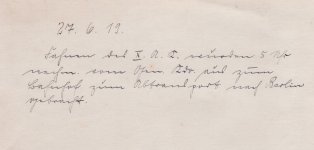 27. 6. 19.
Fahnen des X. A. K. wurden 5 Uhr
nachm. vom Gen. Kdo. aus zum
Bahnhof zum Abtransport nach Berlin
gebracht.